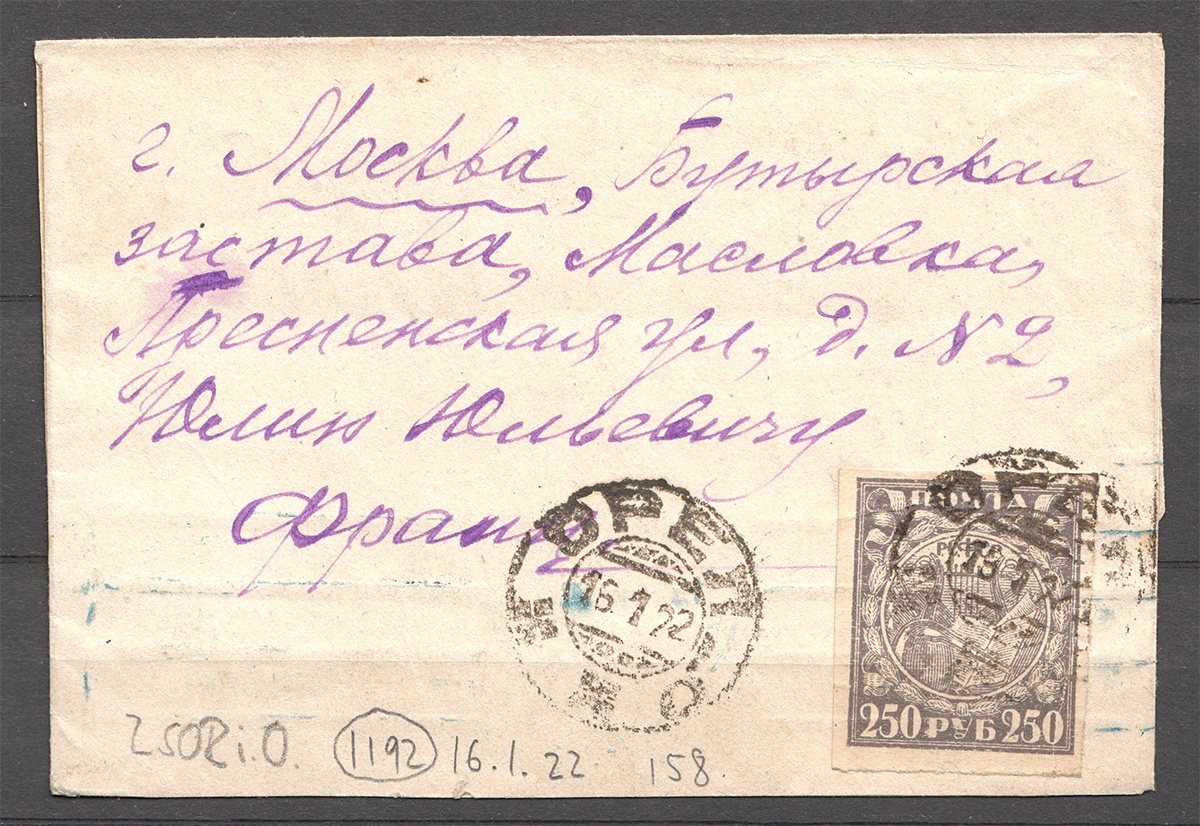 г. Москва, Бутырская
застава, Масловка,
Пресненская ул, д. N 2,
Юлию Юльевичу
ОРЕЛ
16 1 22
ПОЧТА
РСФСР
250 РУБ 250
250Ri.0.
1192
16.1.22
158